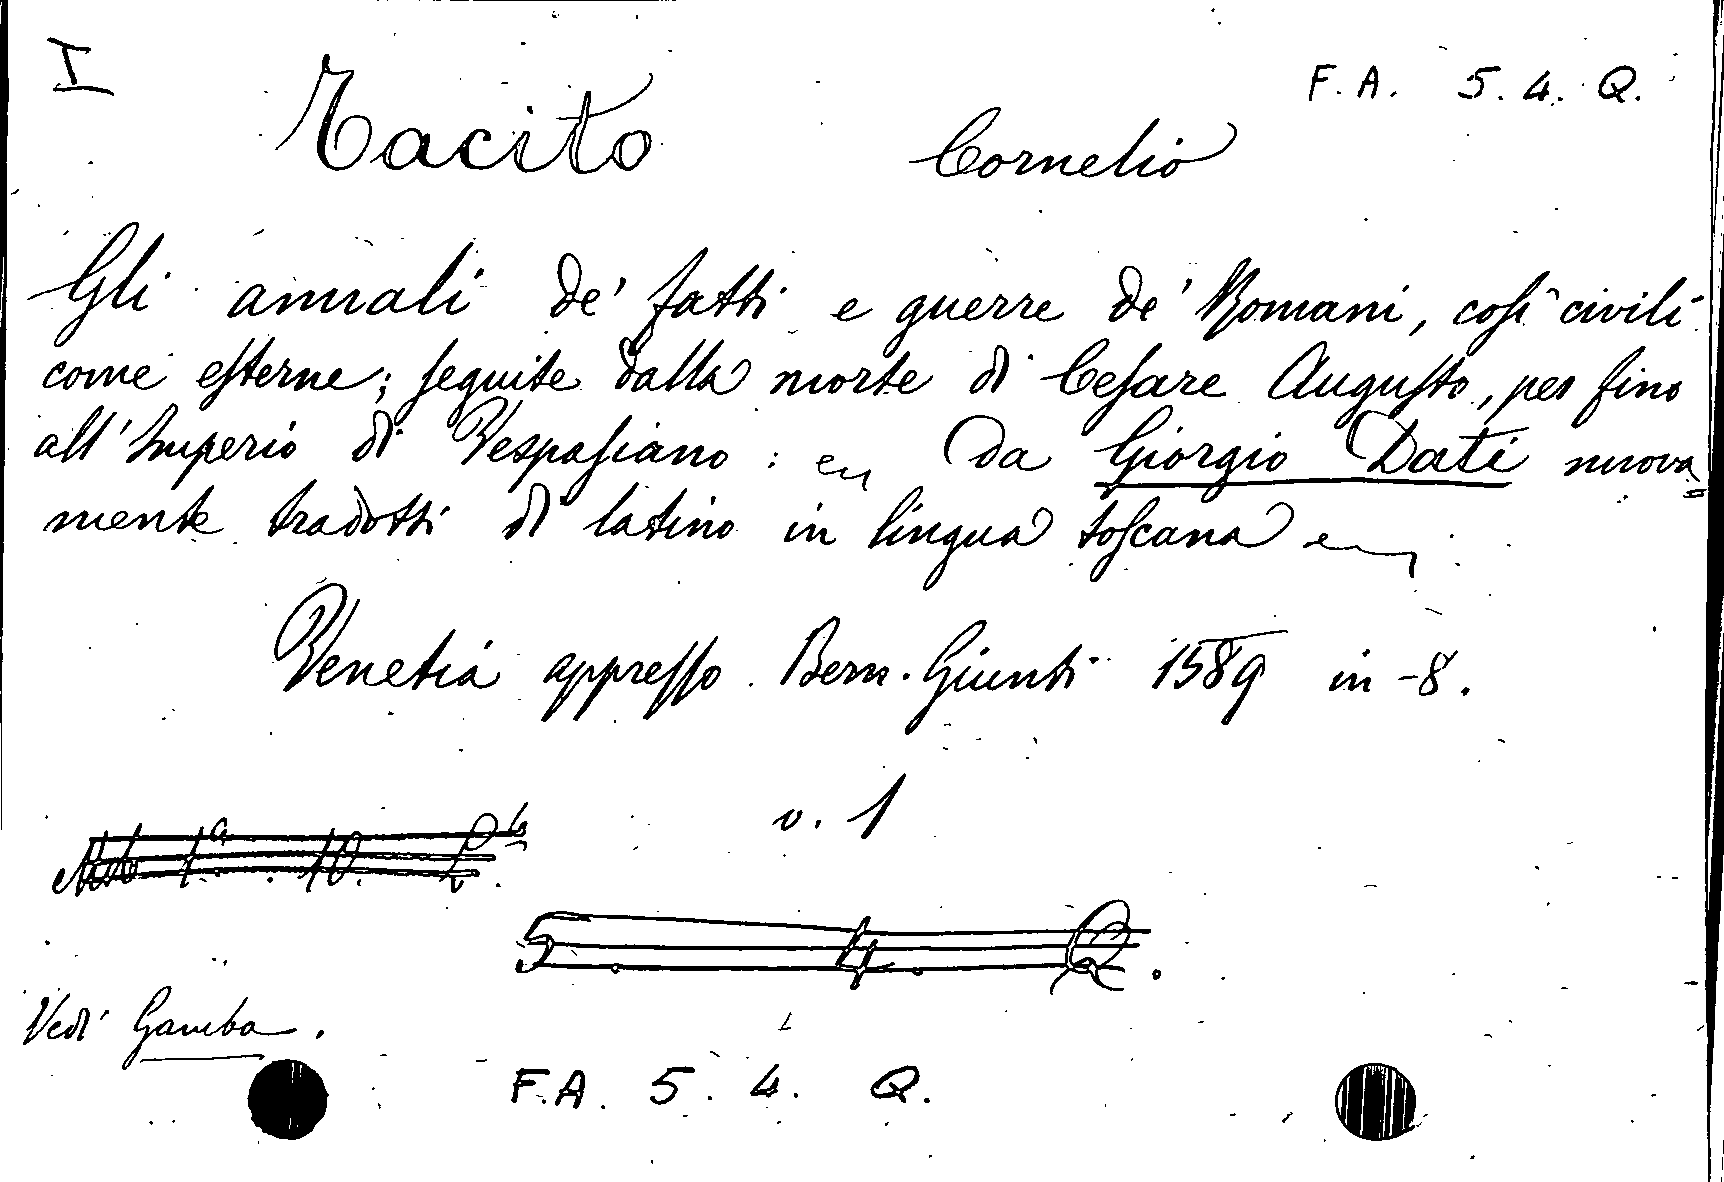 I
F. A. 5. 4. Q.
Tacito Cornelio
Gli annali de' fatti e guerre de' Romani, cosi civili
come esterne; seguite dalla morte di Cesare Augusto, per fino
all'Imperio di Vespasiano : da Giorgio Dati nuova=
mente tradotti di latino in lingua toscana
Venetia appresso Bern. Giunti 1589 in-8.
v. 1
5. 4. Q.
Vedi Gamba.
F.A. 5. 4. Q.